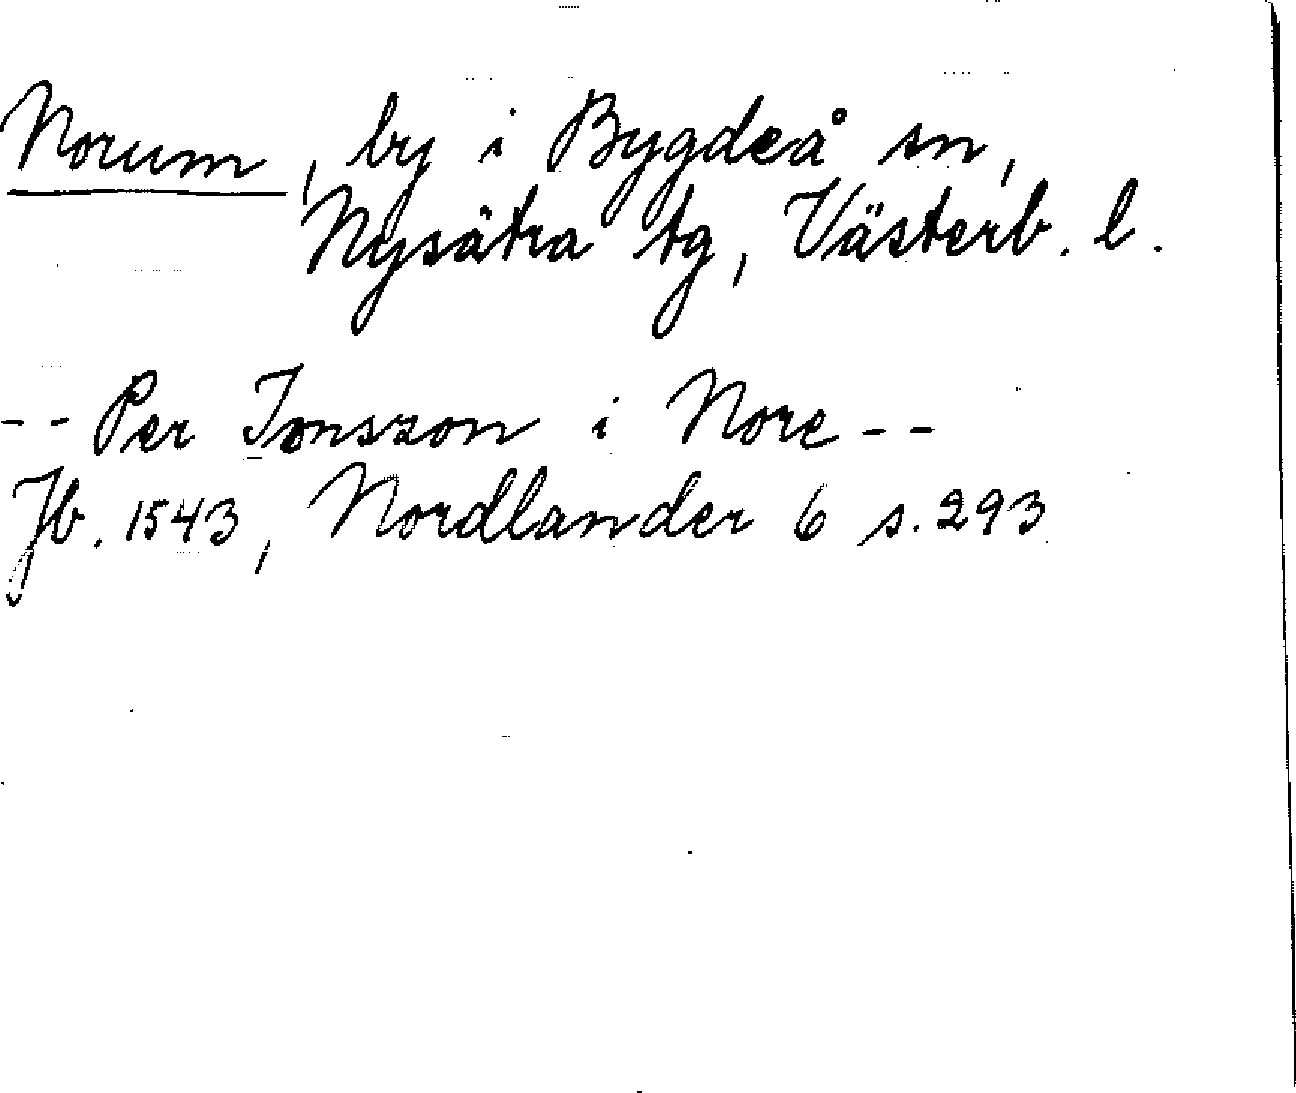 Norum, by i Bygdeå sn,
Nysätra tg, Västerb. l.
-- Per Jonszon i Nore --
Jb. 1543, Nordlander 6 s. 293